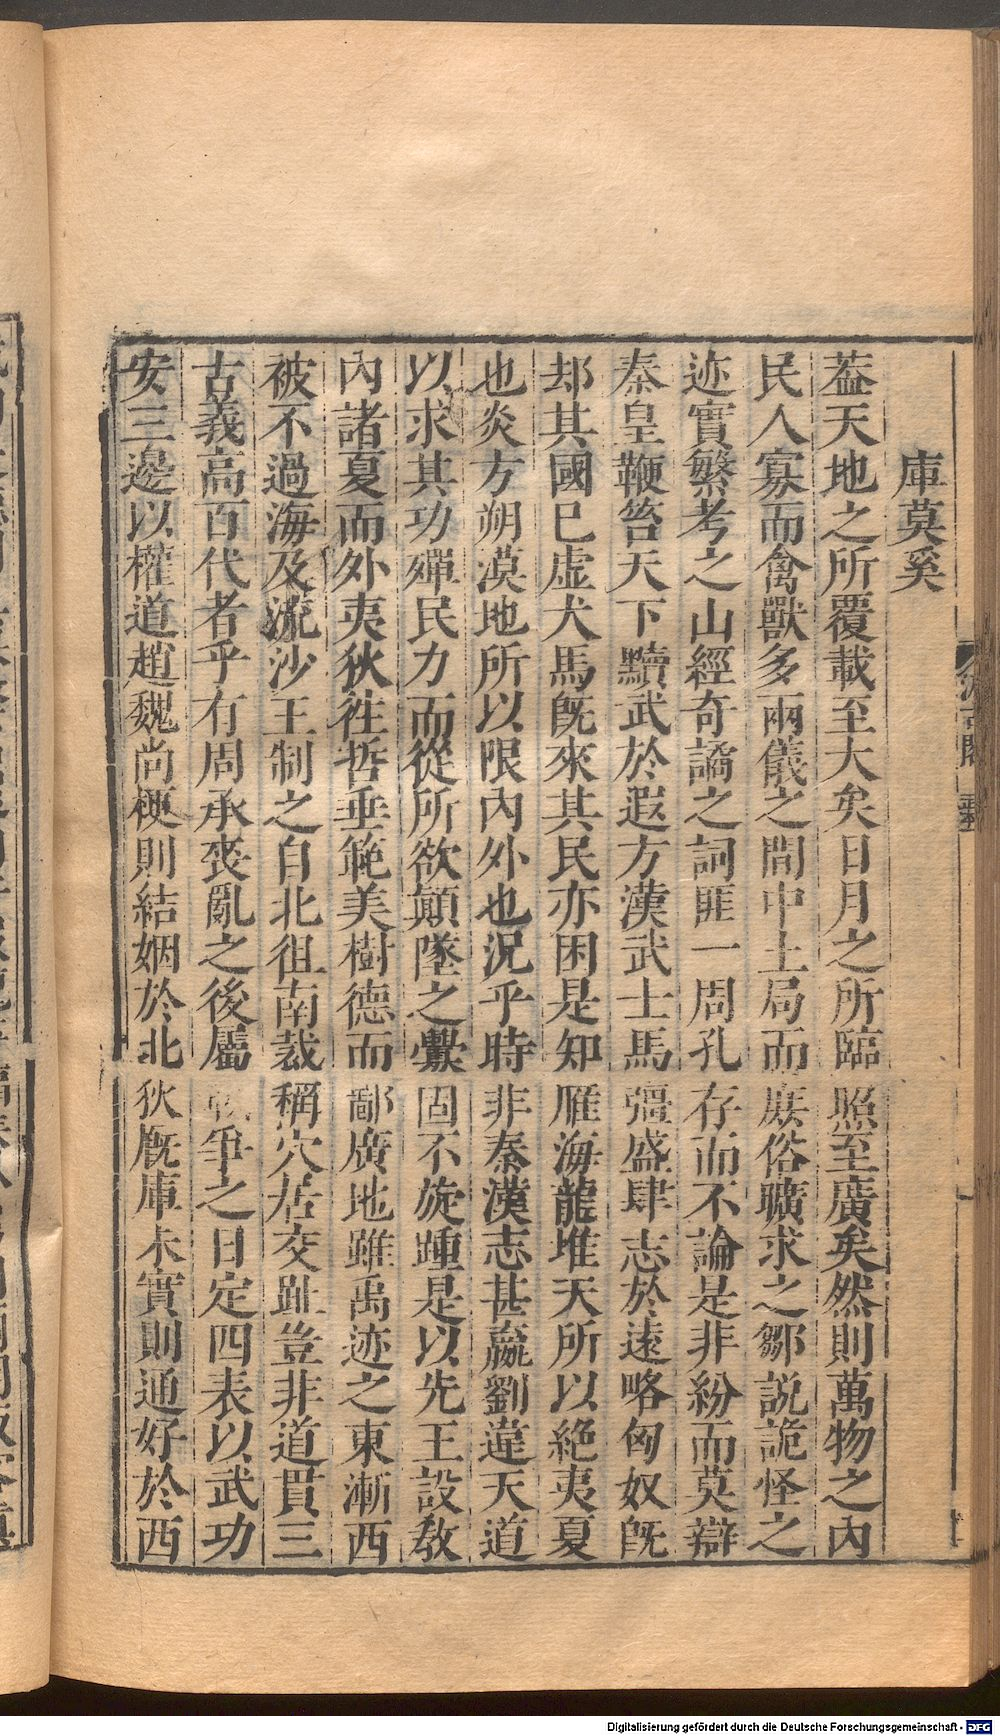 庫莫奚
葢天地之所覆載至大矣日月之所臨照至廣矣然則萬物之內
民人寡而禽獸多兩儀之間中土局而庶俗曠求之鄒說詭怪之
迹實繁考之山經奇譎之詞匪一周孔存而不論是非紛而莫辯
秦皇鞭笞天下黷武於遐方漢武士馬彊盛肆志於遠略匈奴旣
却其國巳虛犬馬旣來其民亦困是知雁海龍堆天所以絕夷夏
也炎方朔漠地所以限內外也況乎時非秦漢志甚嬴劉違天道
以求其功殫民力而從所欲顚墜之釁固不旋踵是以先王設敎
內諸夏而外夷狄徃哲垂範美樹德而鄙廣地雖禹迹之東漸西
被不過海及流沙王制之自北徂南裁稱穴居交趾豈非道貫三
古義高百代者乎有周承喪亂之後屬戰爭之日定四表以武功
安三邊以權道趙魏尚梗則結姻於北狄厩庫未實則通好於西
Digitalisierung gefördert durch die Deutsche Forschungsgemeinschaft - DFG